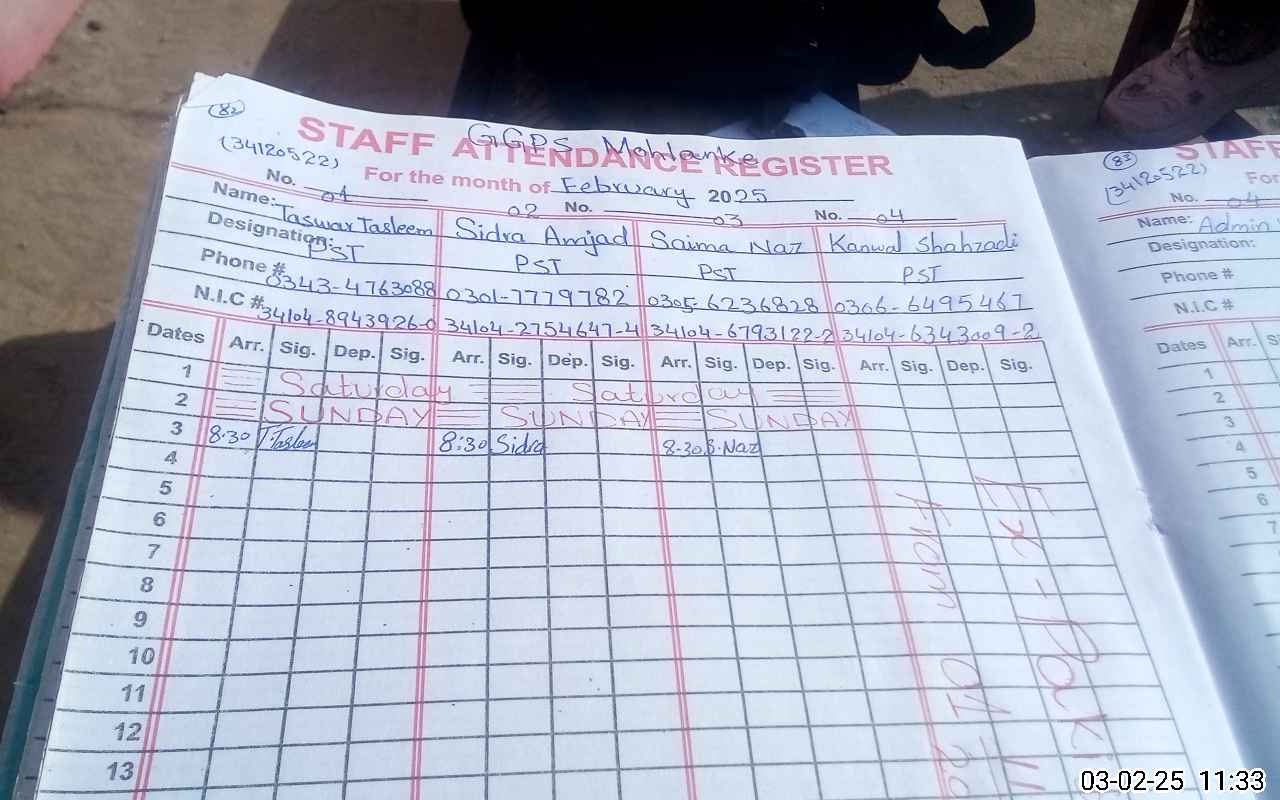 82
GGPS Mohlanke
STAFF ATTENDANCE REGISTER
(34120522)
For the month of February 2025
No. 01 02 No. 03 No. 04
Name: Taswar Tasleem Sidra Amjad Saima Naz Kanwal Shahzadi
Designation: PST PST PST PST
Phone # 0343-4763088 0301-7779782 0305-6236828 0366-6495467
N.I.C # 34104-8943926-0 34104-2754647-4 34104-6793122-2 34104-6343009-2
Dates Arr. Sig. Dep. Sig. Arr. Sig. Dep. Sig. Arr. Sig. Dep. Sig. Arr. Sig. Dep. Sig.
1 Saturday Saturday
2 SUNDAY SUNDAY SUNDAY
3 8:30 T.Tasleem 8:30 Sidra 8:30 S.Naz
4
5
6
7
8
9
10
11
12
13
Ex-Pak
From 01
83
STAFF
(34120522)
For
No. 04
Name: Admin
Designation:
Phone #
N.I.C #
Dates Arr.
1
2
3
4
5
6
7
03-02-25 11:33